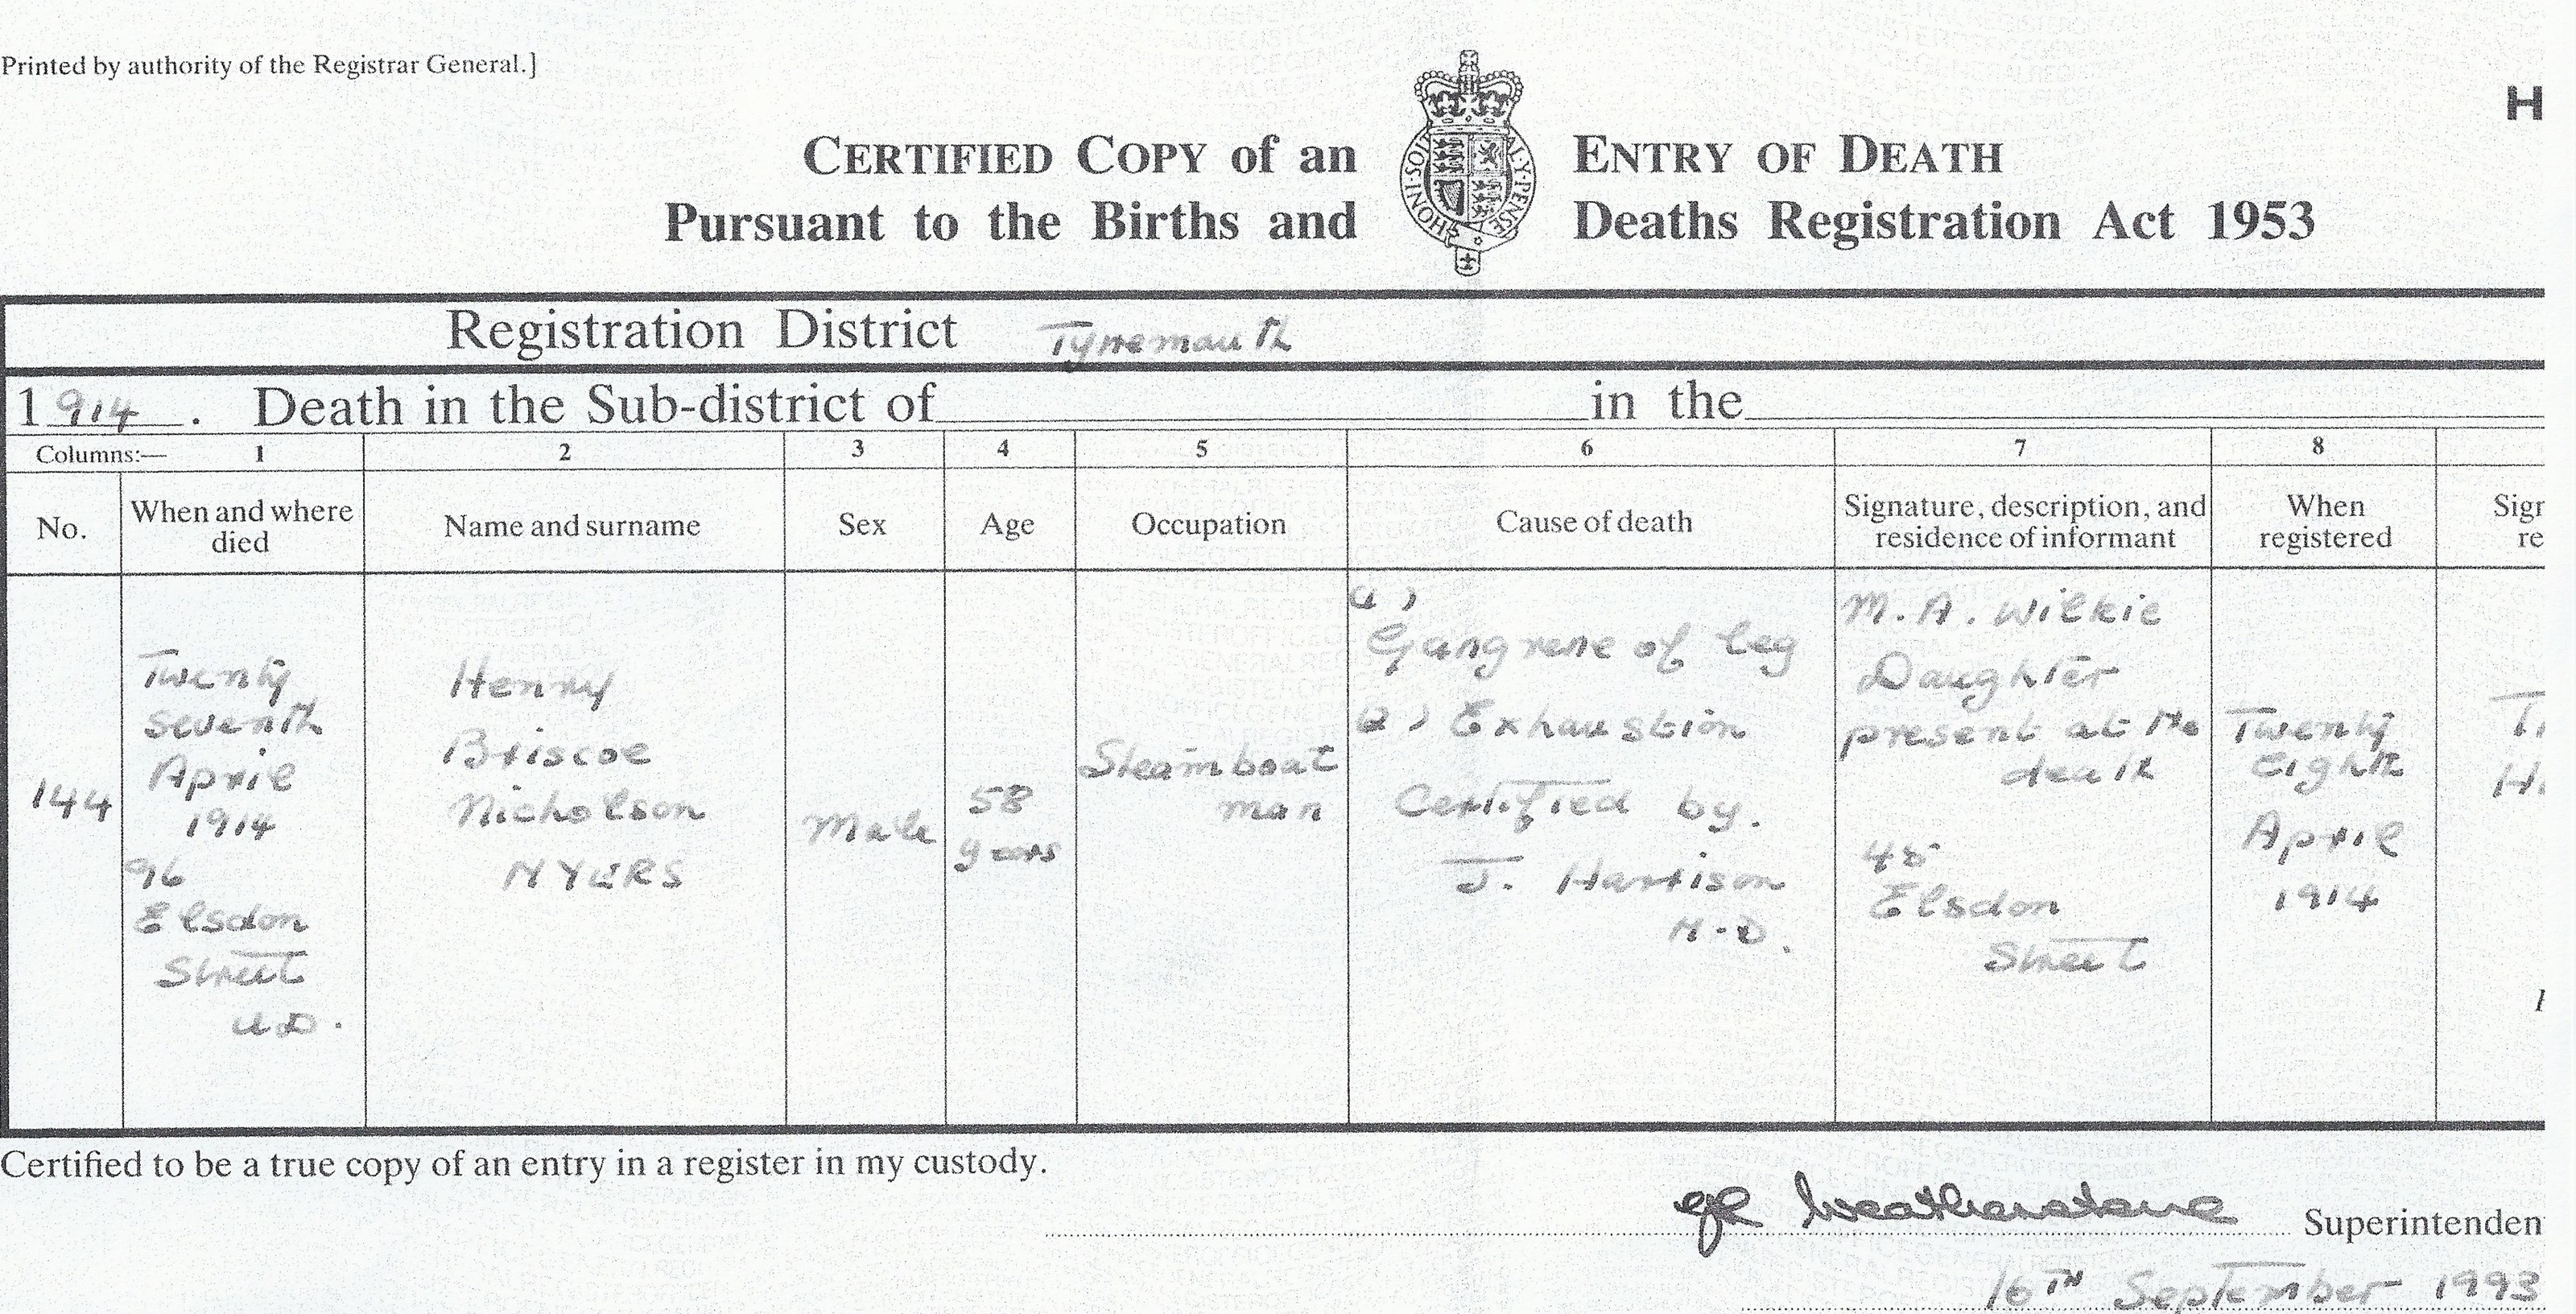 Printed by authority of the Registrar General.]
H
CERTIFIED COPY of an ENTRY OF DEATH
Pursuant to the Births and Deaths Registration Act 1953
HONI·SOIT Y·PENSE
Registration District Tynemouth
1914. Death in the Sub-district of in the
Columns:— 1 2 3 4 5 6 7 8
No.
When and where
died
Name and surname
Sex
Age
Occupation
Cause of death
Signature, description, and
residence of informant
When
registered
Sigr
re
144
Twenty
seventh
April
1914
96
Elsdon
Street
U.D.
Henry
Briscoe
Nicholson
MYERS
Male
58
years
Steamboat
man
(1)
Gangrene of leg
(2) Exhaustion
Certified by.
J. Harrison
M.D.
M. A. Wilkie
Daughter
present at the
death
45
Elsdon
Street
Twenty
eighth
April
1914
Certified to be a true copy of an entry in a register in my custody.
Weatherstone Superintenden
16TH September 1993